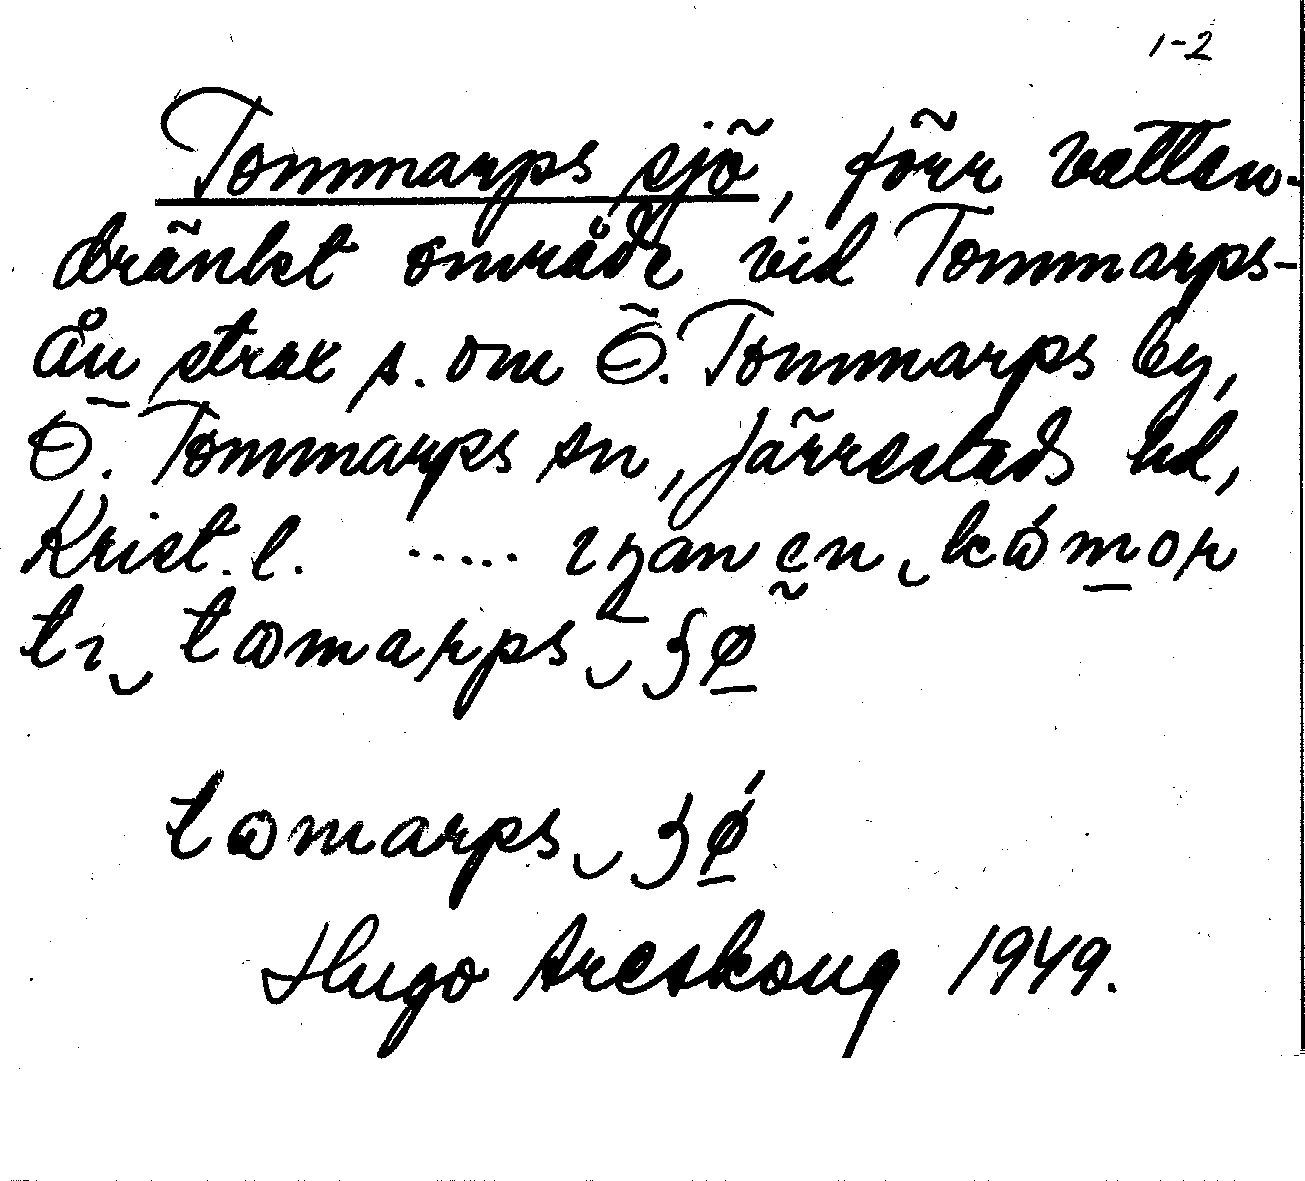 1-2
Tommarps sjö, förr vatten-
dränkt område vid Tommarps-
ån strax s. om Ö. Tommarps by,
Ö. Tommarps sn, Järrestads hd,
Krist. l. .....
tomarps
tomarps
Hugo Areskoug 1949.